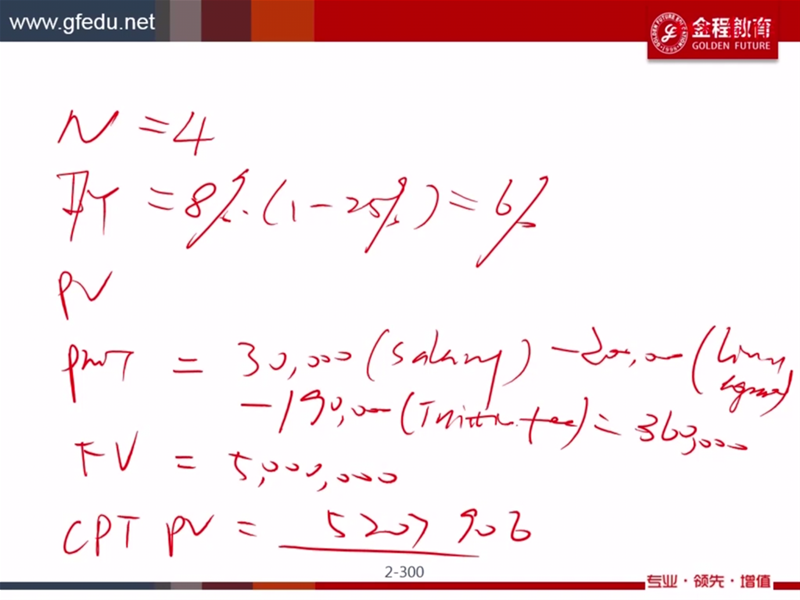 www.gfedu.net
金程教育
GOLDEN FUTURE
N = 4
I/Y = 8%·(1-25%) = 6%
PV
PMT = 30,000 (Salary) - 200,000 (Living
-190,000 (Tuition fee) = 360,000
FV = 5,000,000
CPT PV = 5207 906
2-300
专业·领先·增值